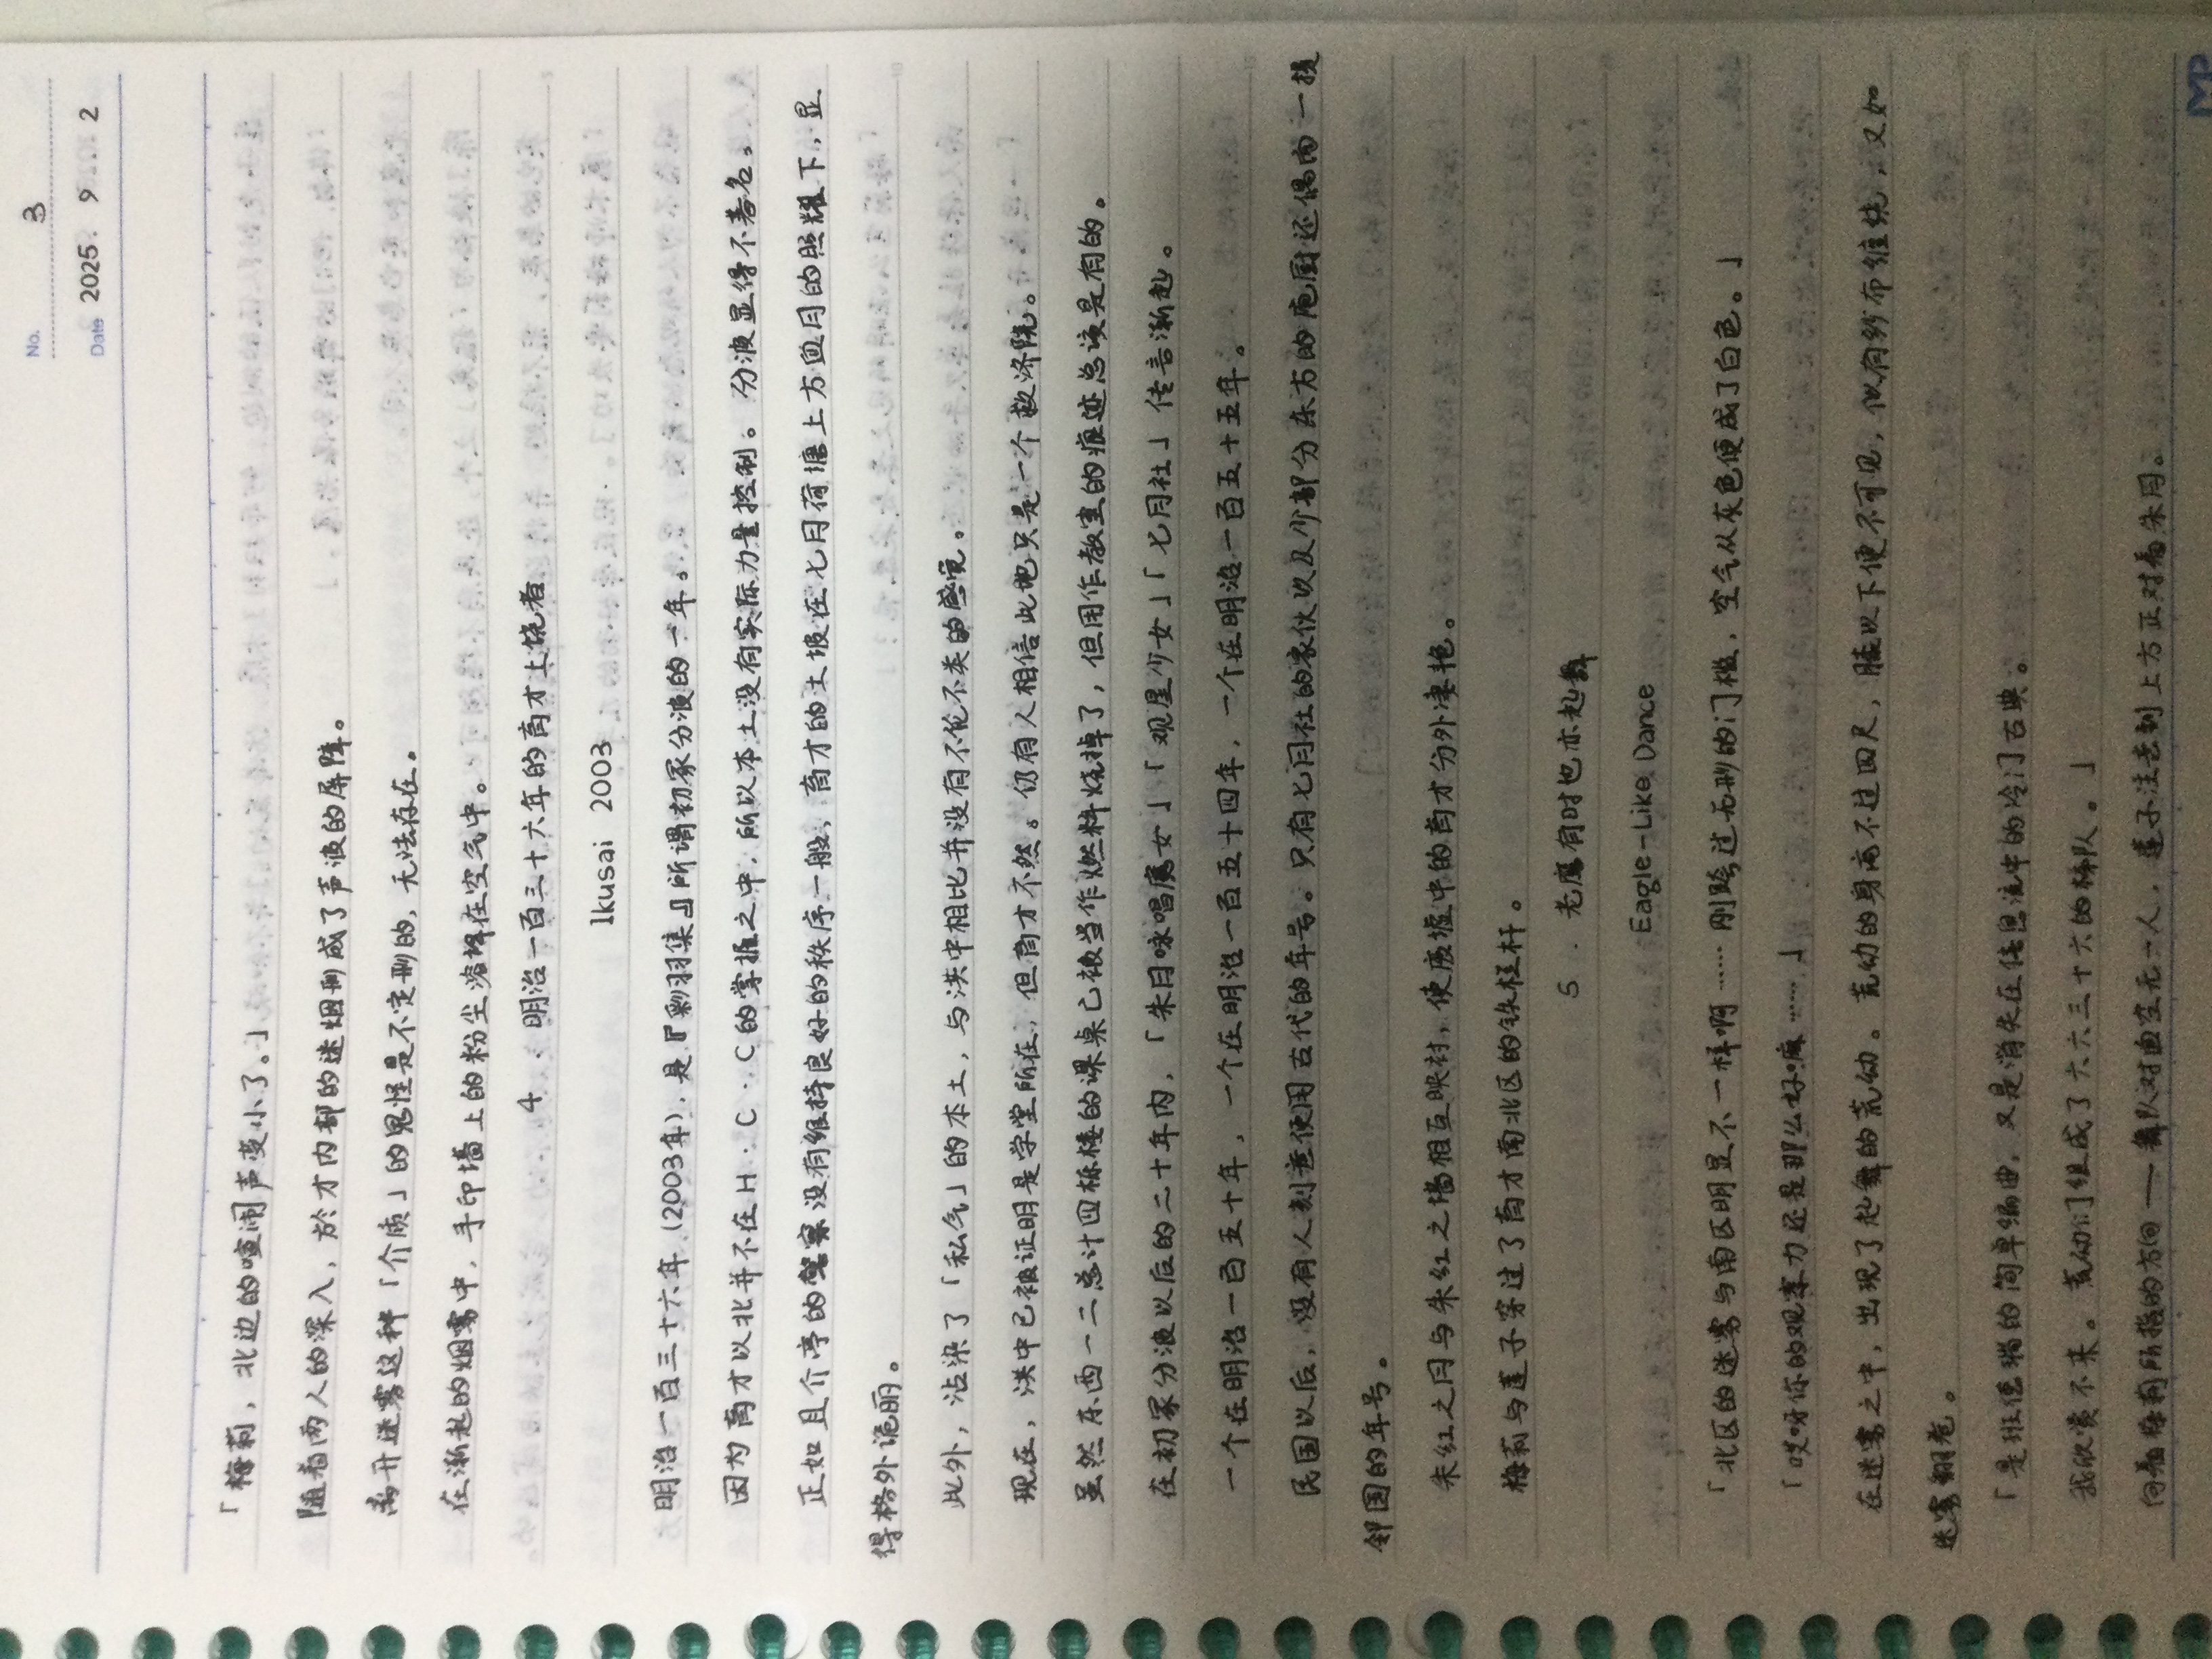 No. 3
Date 2025. 9 . 2
「梅莉，北边的喧闹声变小了。」
随着两人的深入，於才内部的迷烟形成了声波的屏障。
离开迷雾这种「介质」的鬼怪是不定形的，无法存在。
在渐起的烟雾中，手印墙上的粉尘溶解在空气中。
4 . 明治一百三十六年的育才上饶者
Ikusai 2003
明治一百三十六年（2003年），是『彩羽集』所谓初冢分波的一年。
因为育才以北并不在H·C·C的掌握之中，所以本土没有实际力量控制。分波显得不著名。
正如且介亭的警察没有维持良好的秩序一般，育才的土坡在七月荷塘上方血月的照耀下，显
得格外诡丽。
此外，沾染了「私气」的本土，与洪中相比并没有不伦不类的感觉。
现在，洪中已被证明是学堂所在，但育才不然。仍有人相信此地只是一个救济院。
虽然东西一二总计四栋楼的课桌已被当作燃料烧掉了，但用作教室的痕迹总该是有的。
在初冢分波以后的二十年内，「朱月咏唱魔女」「观星少女」「七月社」传言渐起。
一个在明治一百五十年，一个在明治一百五十四年，一个在明治一百五十五年。
民国以后，没有人刻意使用古代的年号。只有七月社的家伙以及少部分东方的庖厨还偶尔一提
邻国的年号。
朱红之月与朱红之墙相互映衬，使废墟中的育才分外凄艳。
梅莉与莲子穿过了育才南北区的铁栏杆。
5 . 老鹰有时也亦起舞
Eagle-Like Dance
「北区的迷雾与南区明显不一样啊……刚跨过无形的门槛，空气从灰色便成了白色。」
「哎呀你的观察力还是那么好嘛……」
在迷雾之中，出现了起舞的荒幼。荒幼的身高不过四尺，膝以下便不可见，似有纱布缠绕，又如
迷雾翻卷。
「是班德瑞的简单编曲，又是消失在信息流中的冷门古典。
我欣赏不来。荒幼们组成了六六三十六的梯队。」
向着梅莉所指的方向——舞队对面空无一人，莲子注意到上方正对着朱月。